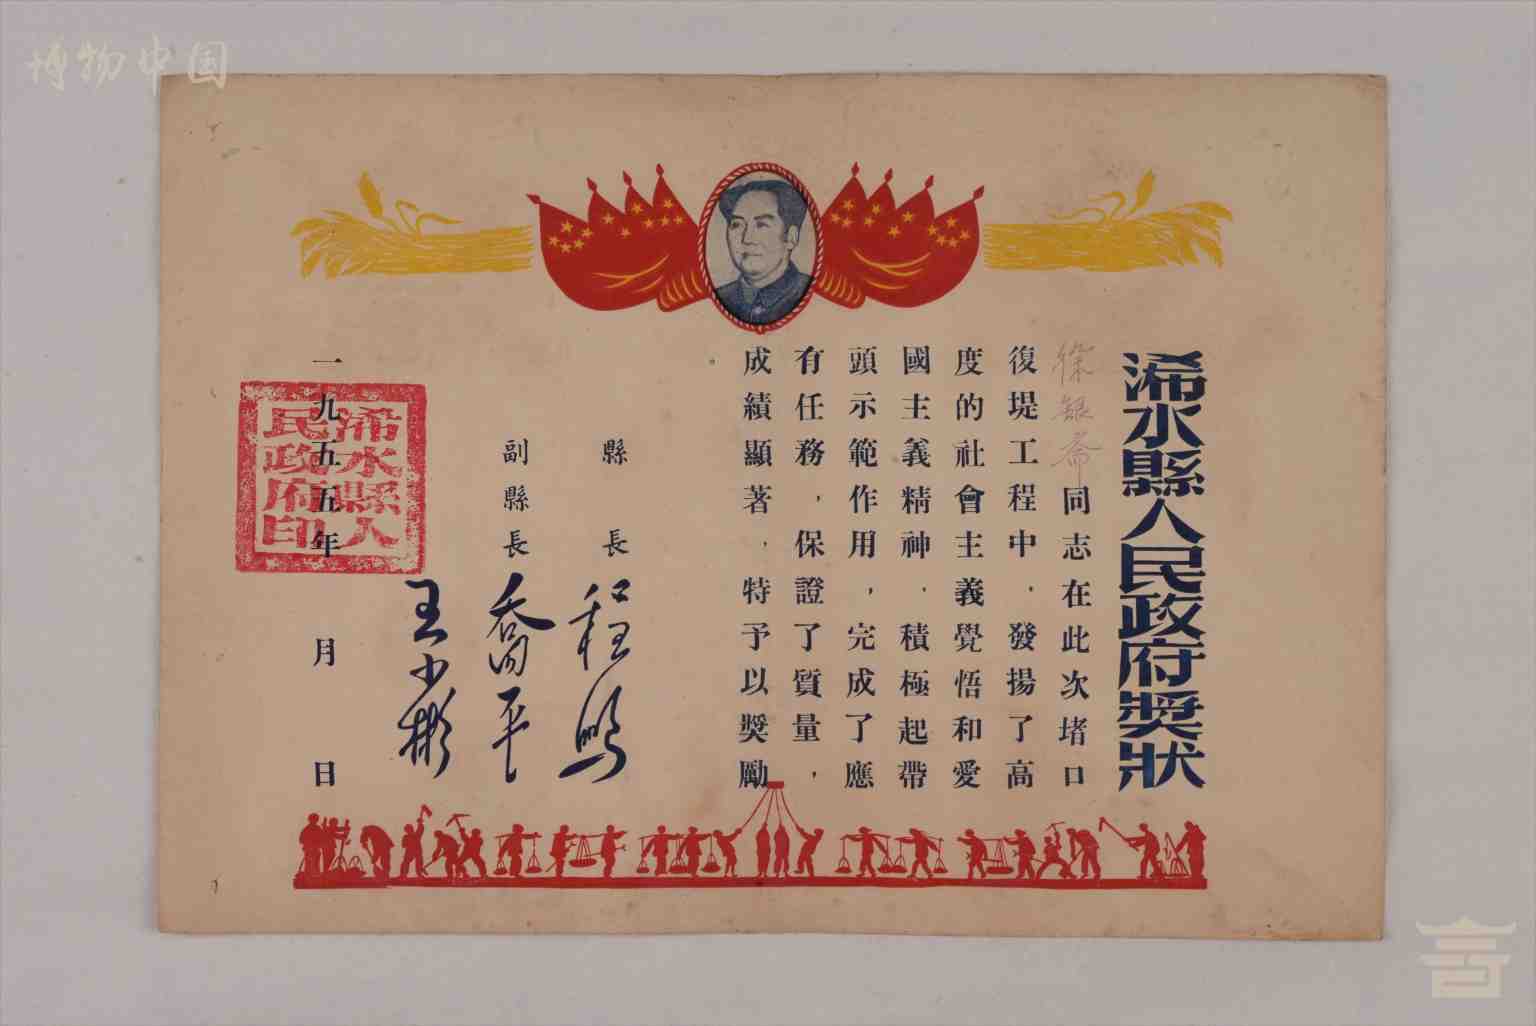 博物中国
浠水縣人民政府獎狀
徐銀斋同志在此次堵口
復堤工程中，發揚了高
度的社會主義覺悟和愛
國主義精神，積極起帶
頭示範作用，完成了應
有任務，保證了質量，
成績顯著，特予以獎勵
縣 長 程鵬
副縣長 喬平
王少彬
一九五五年 月 日
浠水縣人
民政府印